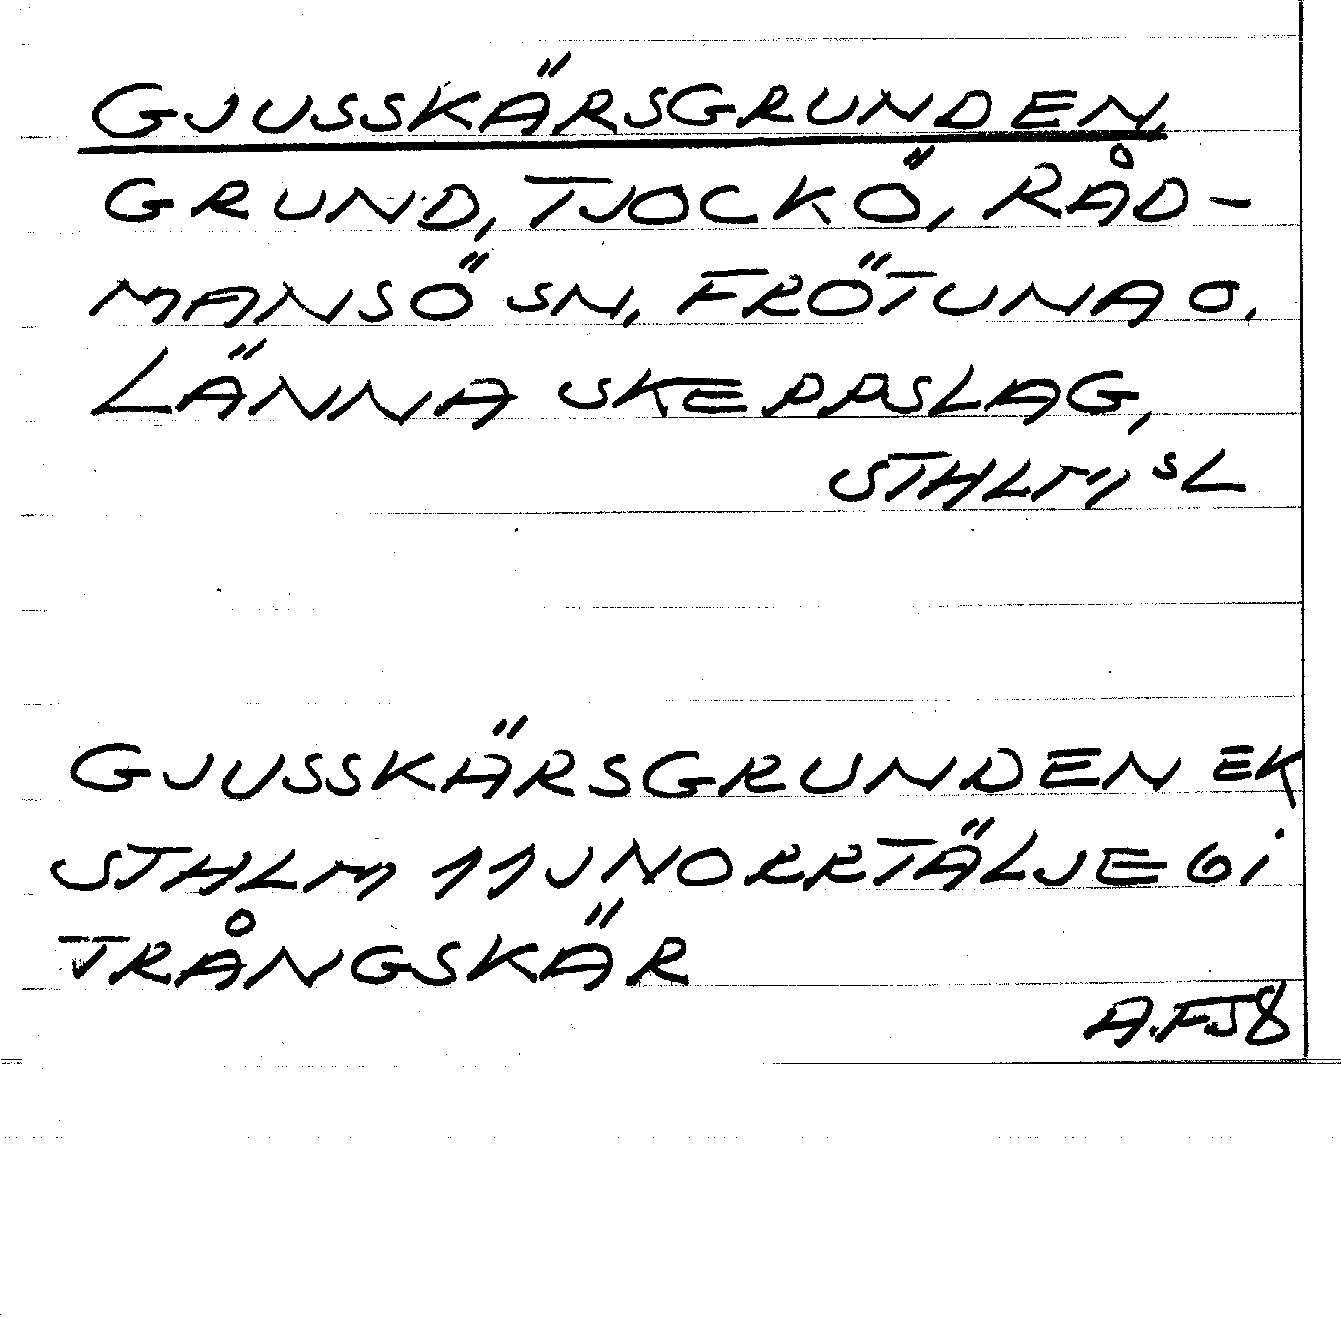 GJUSSKÄRSGRUNDEN,
GRUND, TJOCKÖ, RÅD-
MANSÖ SN, FRÖTUNA O.
LÄNNA SKEPPSLAG,
STHLMSL
GJUSSKÄRSGRUNDEN EK
STHLM 11J NORRTÄLJE 6i
TRÅNGSKÄR
A.F58